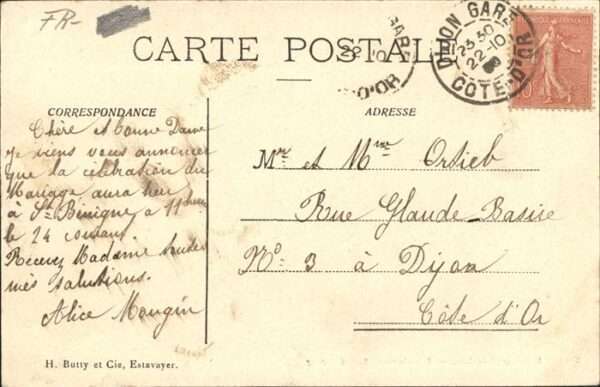 FR-
CARTE POSTALE
DIJON GARE
23 30
22-10
COTE-D'OR
22 10
D'OR
CORRESPONDANCE
ADRESSE
Chère et bonne Dame
je viens vous annoncer
que la célébration du
Mariage aura lieu
à St Bénigne, a 11 heures
le 24 courant
Recevez Madame toutes
mes salutions.
Alice Mougin
Mr et Mme Ortieb
Rue Glaude-Basire
No 3 à Dijon
Côte d'Or
H. Butty et Cie, Estavayer.